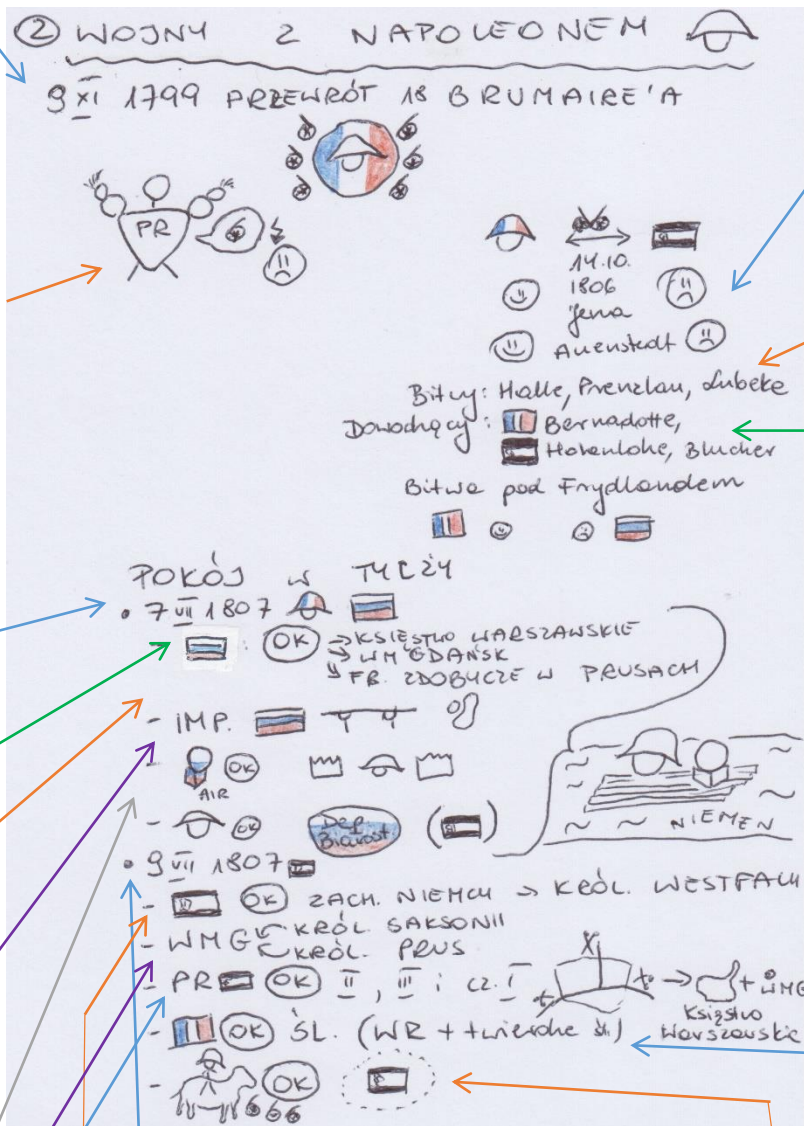 ② WOJNY Z NAPOLEONEM
9 XI 1799 PRZEWRÓT 18 BRUMAIRE'A
PR
14.10.
1806
Jena
Auenstedt
Bitwy: Halle, Prenzlau, Lubeke
Dowodzący: Bernadotte,
Hohenlohe, Blucher
Bitwa pod Frydlandem
POKÓJ W TYLŻY
• 7 VII 1807
: OK → KSIĘSTWO WARSZAWSKIE
→ WM GDAŃSK
↘ FR. ZDOBYCZE W PRUSACH
- IMP.
- OK
AIR
- OK Dep. Białost ( )
NIEMEN
• 9 VII 1807
- OK ZACH. NIEMCY → KRÓL. WESTFALII
- WMG KRÓL SAKSONII
KRÓL. PRUS
- PR OK II, III i cz. I → + WMG
Księstwo
Warszawskie
- OK ŚL. (WR + twierdze śl.)
- OK